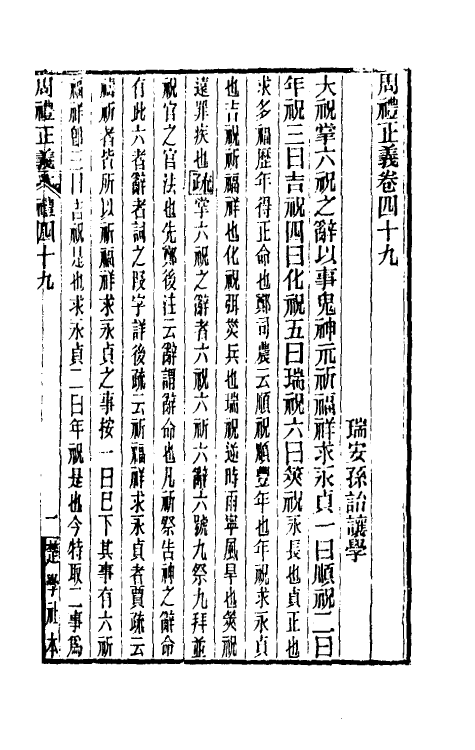 周禮正義卷四十九
瑞安孫詒讓學
大祝掌六祝之辭以事鬼神示祈福祥求永貞一曰順祝二曰
年祝三曰吉祝四曰化祝五曰瑞祝六曰筴祝永長也貞正也
求多福歷年得正命也鄭司農云順祝順豐年也年祝求永貞
也吉祝祈福祥也化祝弭災兵也瑞祝逆時雨寧風旱也筴祝
遠罪疾也疏掌六祝之辭者六祝六祈六辭六號九祭九拜並
祝官之官法也先鄭後注云辭謂辭命也凡祈祭告神之辭命
有此六者辭者詞之叚字詳後疏云祈福祥求永貞者賈疏云
禱祈者皆所以祈福祥求永貞之事按一曰巳下其事有六祈
福祥卽三曰吉祝是也求永貞二曰年祝是也今特取二事爲
周禮正義 禮四十九
一 楚學社本